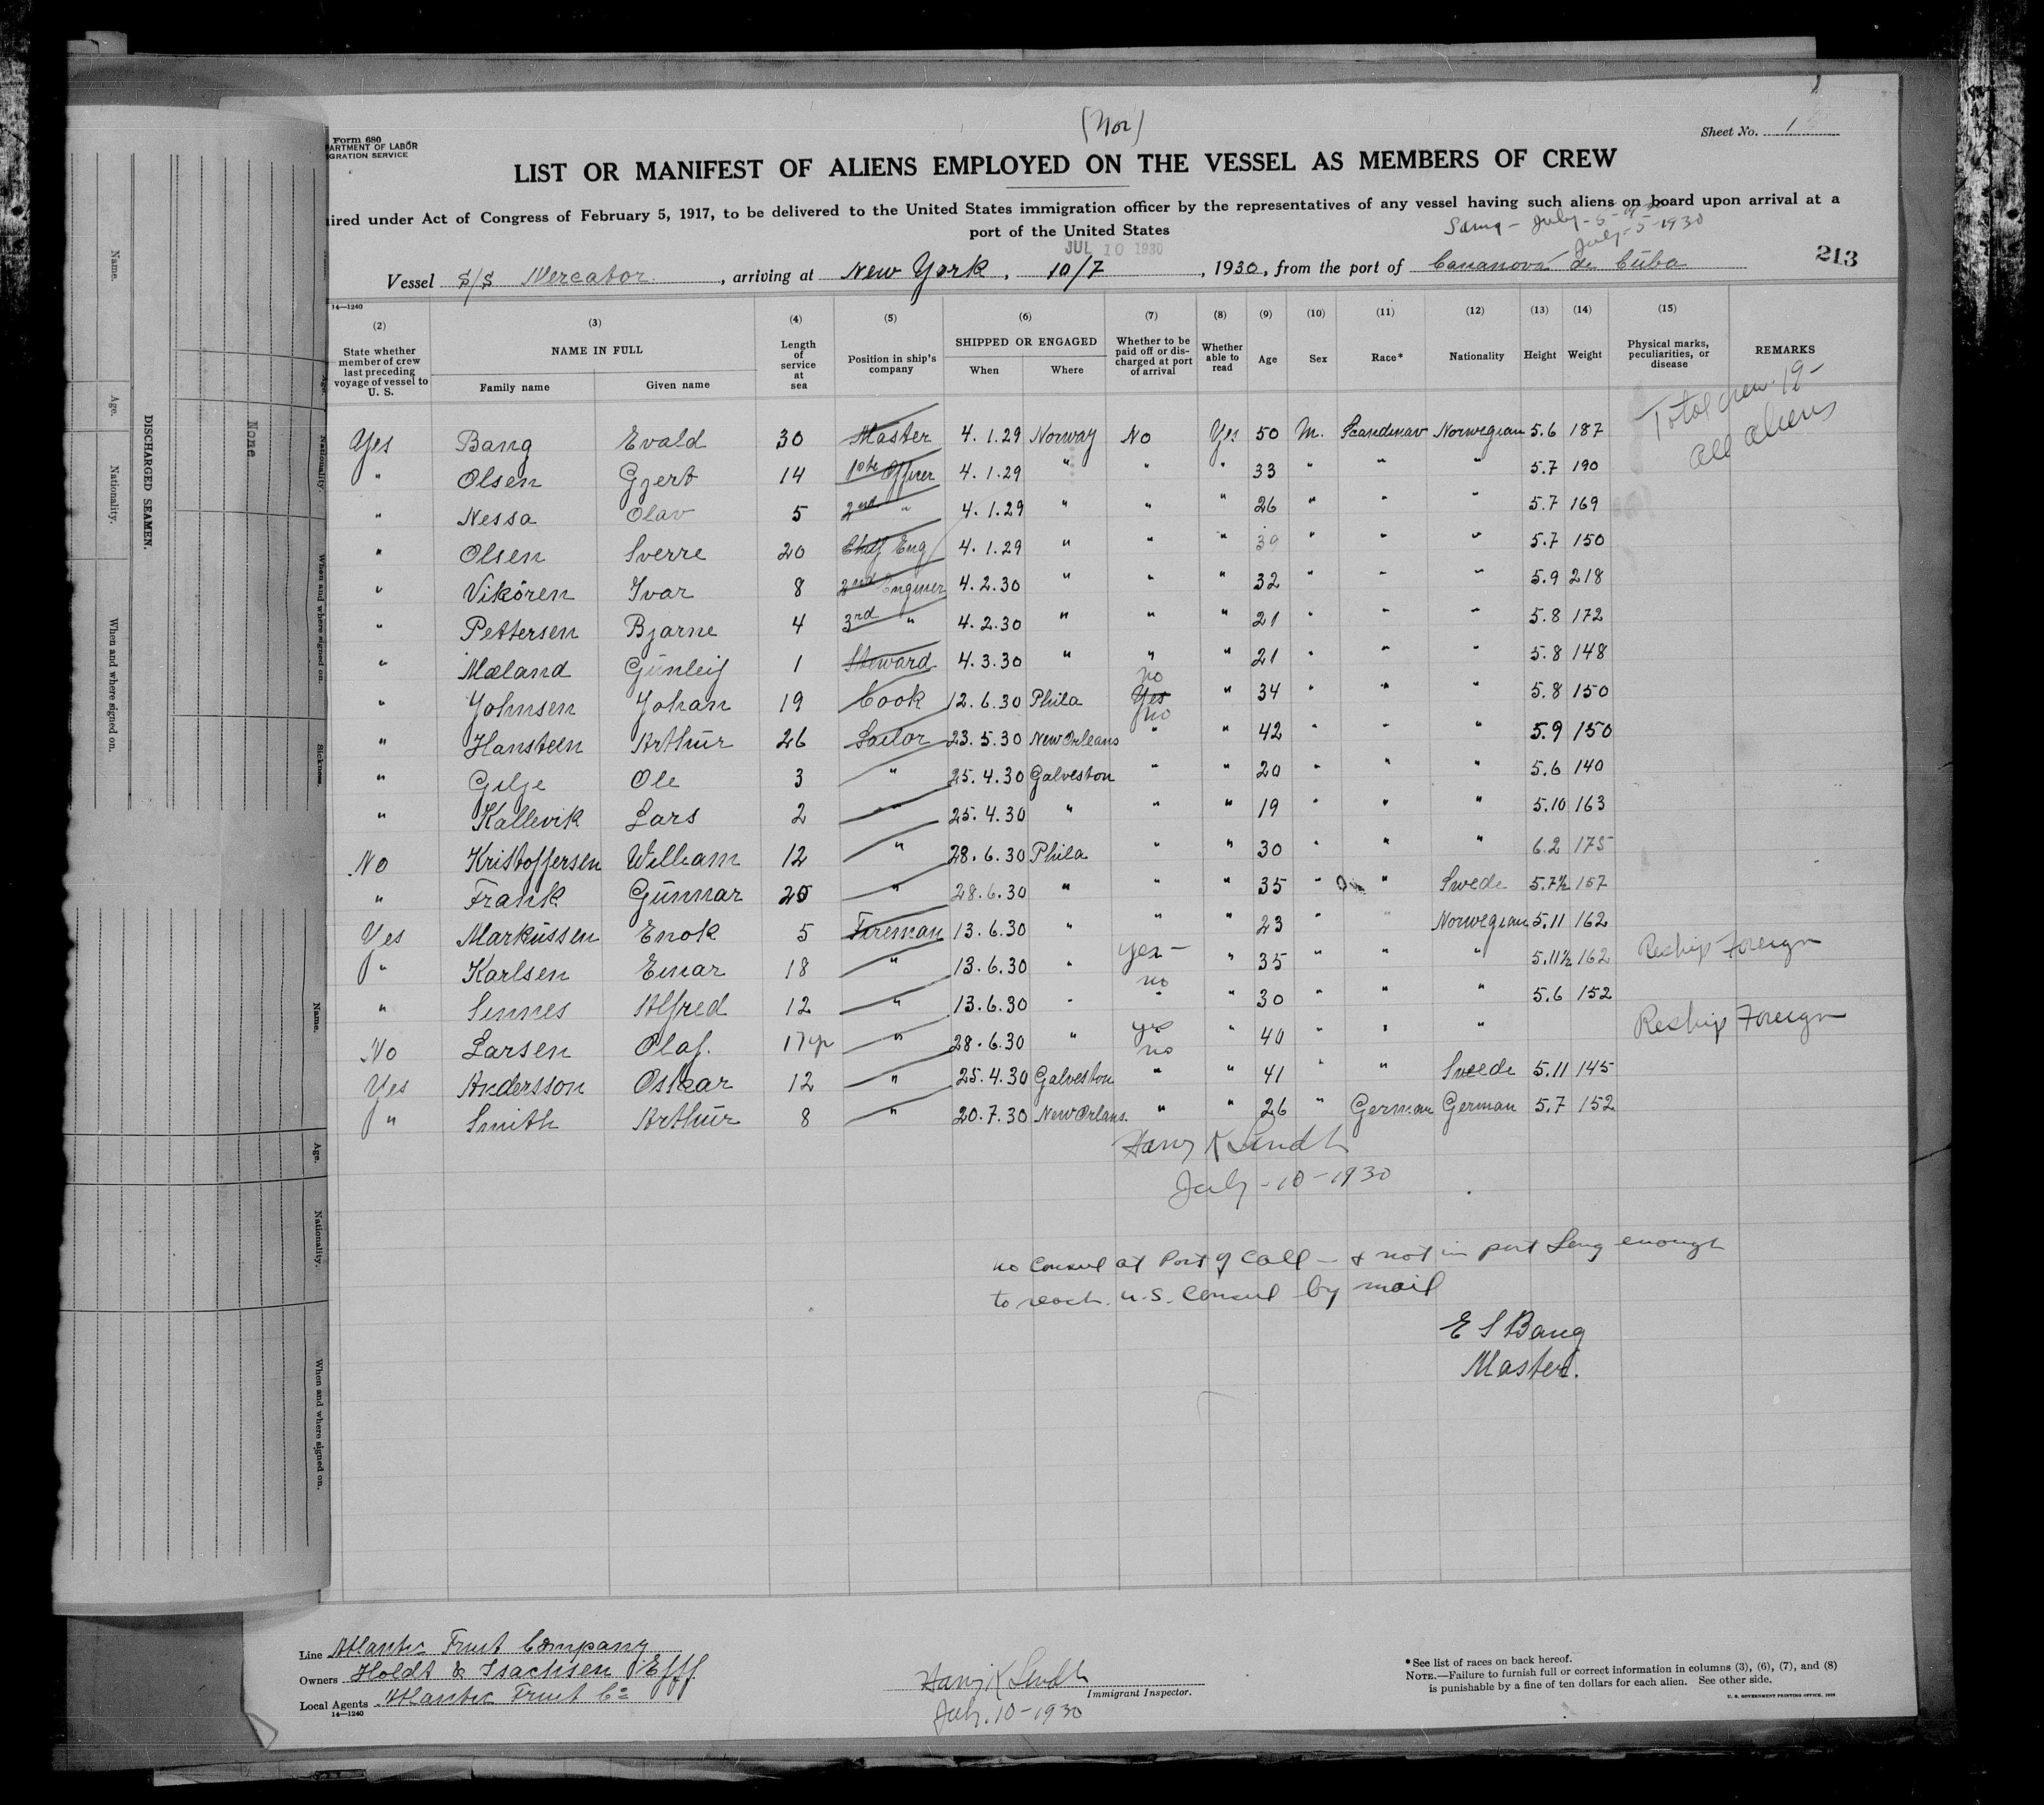 (Nor)
Form 680
PARTMENT OF LABOR
IGRATION SERVICE
Sheet No. 1
LIST OR MANIFEST OF ALIENS EMPLOYED ON THE VESSEL AS MEMBERS OF CREW
ired under Act of Congress of February 5, 1917, to be delivered to the United States immigration officer by the representatives of any vessel having such aliens on board upon arrival at a
port of the United States
July-5-1930
JUL 10 1930
213
Vessel S/S Mercator, arriving at New York, 10/7, 1930, from the port of Cananova de Cuba
14—1240
(2) (3) (4) (5) (6) (7) (8) (9) (10) (11) (12) (13) (14) (15)
State whether member of crew last preceding voyage of vessel to U. S. NAME IN FULL Family name Given name Length of service at sea Position in ship's company SHIPPED OR ENGAGED When Where Whether to be paid off or discharged at port of arrival Whether able to read Age Sex Race* Nationality Height Weight Physical marks, peculiarities, or disease REMARKS
Total crew 19-
all aliens
Yes Bang Evald 30 Master 4.1.29 Norway No Yes 50 M. Scandinav Norwegian 5.6 187
" Olsen Gjert 14 1ste Officer 4.1.29 " " " 33 " " " 5.7 190
" Nessa Olav 5 2nd " 4.1.29 " " " 26 " " " 5.7 169
" Olsen Sverre 20 Chief Eng 4.1.29 " " " 39 " " " 5.7 150
" Vikören Ivar 8 2nd Engineer 4.2.30 " " " 32 " " " 5.9 218
" Pettersen Bjarne 4 3rd " 4.2.30 " " " 21 " " " 5.8 172
" Mæland Gunleif 1 Steward 4.3.30 " " " 21 " " " 5.8 148
" Johnsen Johan 19 Cook 12.6.30 Phila Yes no " 34 " " " 5.8 150
" Hansteen Arthur 26 Sailor 23.5.30 New Orleans no " " 42 " " " 5.9 150
" Gilje Ole 3 " 25.4.30 Galveston " " 20 " " " 5.6 140
" Kallevik Lars 2 " 25.4.30 " " " 19 " " " 5.10 163
No Kristoffersen William 12 " 28.6.30 Phila " " 30 " " " 6.2 175
" Frank Gunnar 20 " 28.6.30 " " " 35 " " Swede 5.7½ 157
Yes Markussen Enok 5 Fireman 13.6.30 " " " 23 " " Norwegian 5.11 162
" Karlsen Einar 18 " 13.6.30 " yes— " 35 " " " 5.11½ 162 Reship Foreign
" Sinnes Alfred 12 " 13.6.30 " no " 30 " " " 5.6 152
No Larsen Olaf. 17yr " 28.6.30 " yes " 40 " " " Reship Foreign
Yes Andersson Oskar 12 " 25.4.30 Galveston no " " 41 " " Swede 5.11 145
" Smith Arthur 8 " 20.7.30 New Orlans. " " 26 " German German 5.7 152
Harry K Lindh
July-10-1930
no Consul at Port of Call — & not in port long enough
to reach U.S. Consul by mail
E S Bang
Master.
Line Atlantic Fruit Company
Owners Holdt & Isachsen Efff
Local Agents Atlantic Fruit Co
14—1240
Harry K Lindh
Immigrant Inspector.
July.10-1930
*See list of races on back hereof.
NOTE.—Failure to furnish full or correct information in columns (3), (6), (7), and (8)
is punishable by a fine of ten dollars for each alien. See other side.
U. S. GOVERNMENT PRINTING OFFICE, 1929
DISCHARGED SEAMEN.
Name.
Age.
Nationality.
When and where signed on.
None
Age.
Nationality.
When and where signed on.
Sickness.
Name.
Age.
Nationality.
When and where signed on.